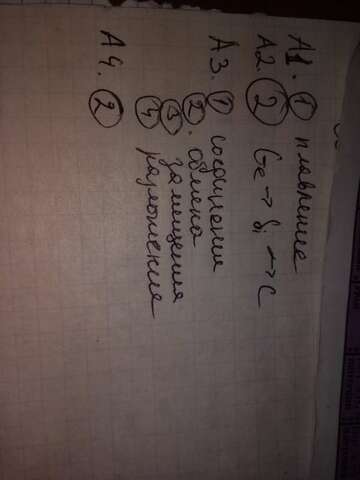 А1. 1 плавление
А2. 2 Ge → Si → C
А3. 1 соединения
2. обмена
3 замещения
4 разложения
А4. 2